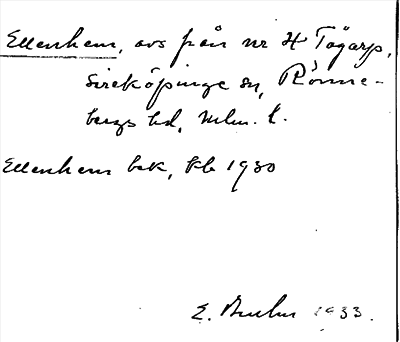 Ellenhem, avs från nr 4 Tågarp,
Sireköpinge sn, Rönne-
bergs hd, Mlm. l.
Ellenhem bek, kb 1930
E. 1933.